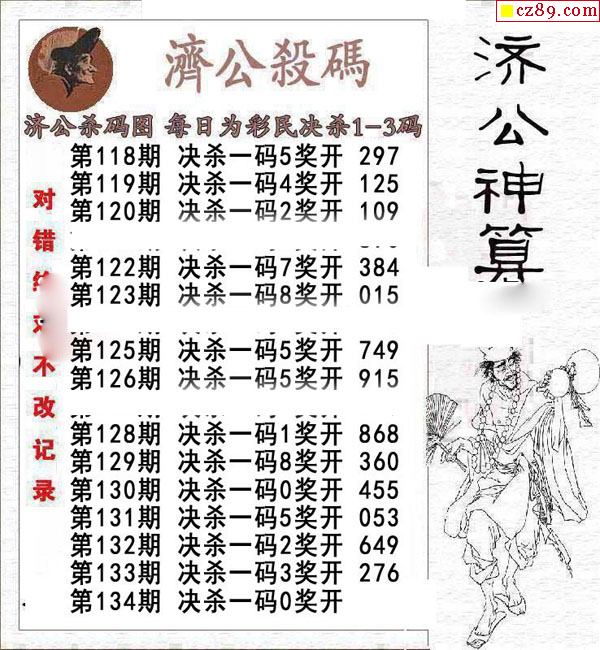 cz89.com
濟公殺碼
济公杀码图 每日为彩民决杀1-3码
第118期 决杀一码5奖开 297
第119期 决杀一码4奖开 125
第120期 决杀一码2奖开 109
第122期 决杀一码7奖开 384
第123期 决杀一码8奖开 015
第125期 决杀一码5奖开 749
第126期 决杀一码5奖开 915
第128期 决杀一码1奖开 868
第129期 决杀一码8奖开 360
第130期 决杀一码0奖开 455
第131期 决杀一码5奖开 053
第132期 决杀一码2奖开 649
第133期 决杀一码3奖开 276
第134期 决杀一码0奖开
对错
不改记录
济公神算